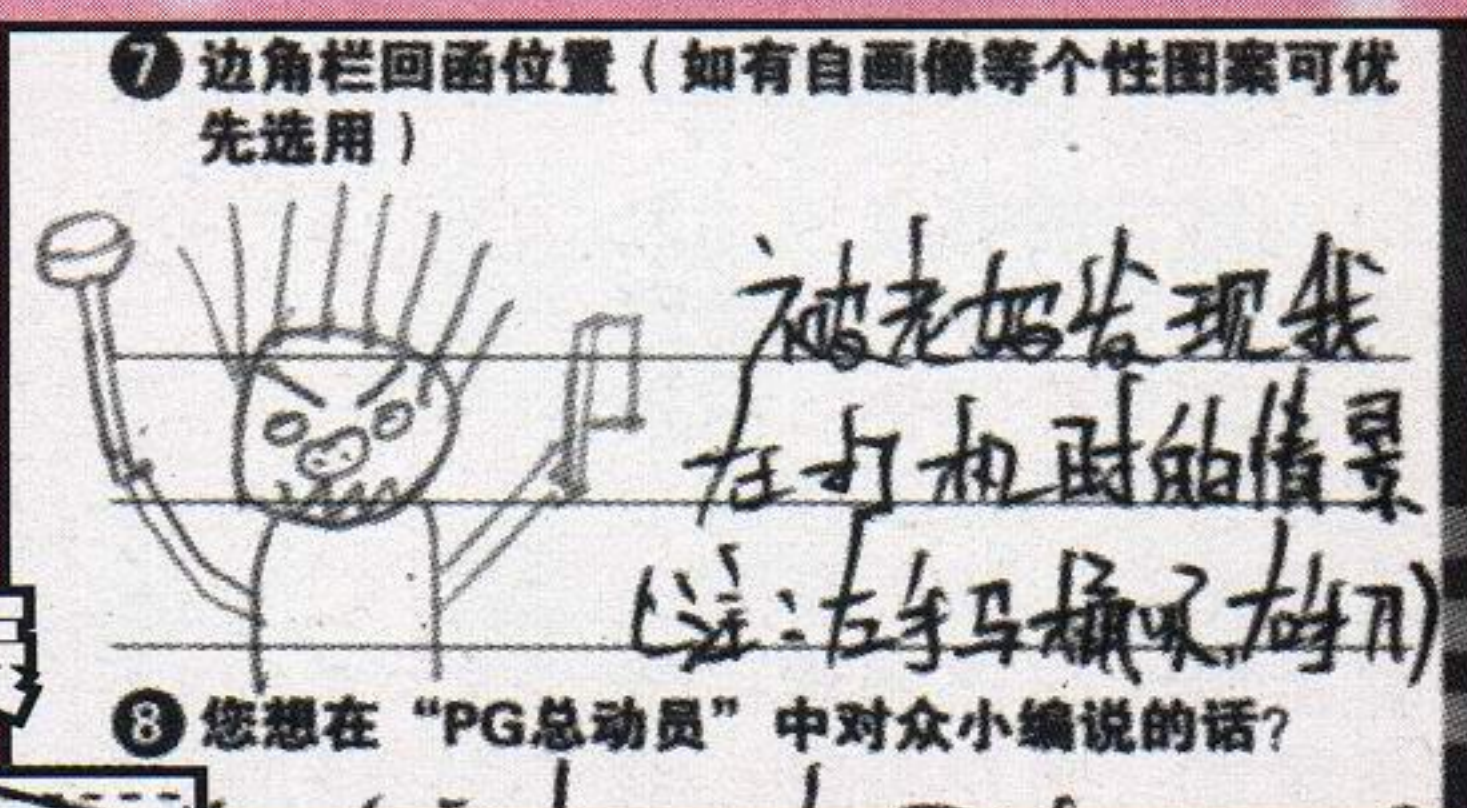 ❼ 边角栏回函位置（如有自画像等个性图案可优
先选用）
被老妈发现我
在打机时的情景
(注:左手马桶吸,右手刀)
❽ 您想在“PG总动员”中对众小编说的话?